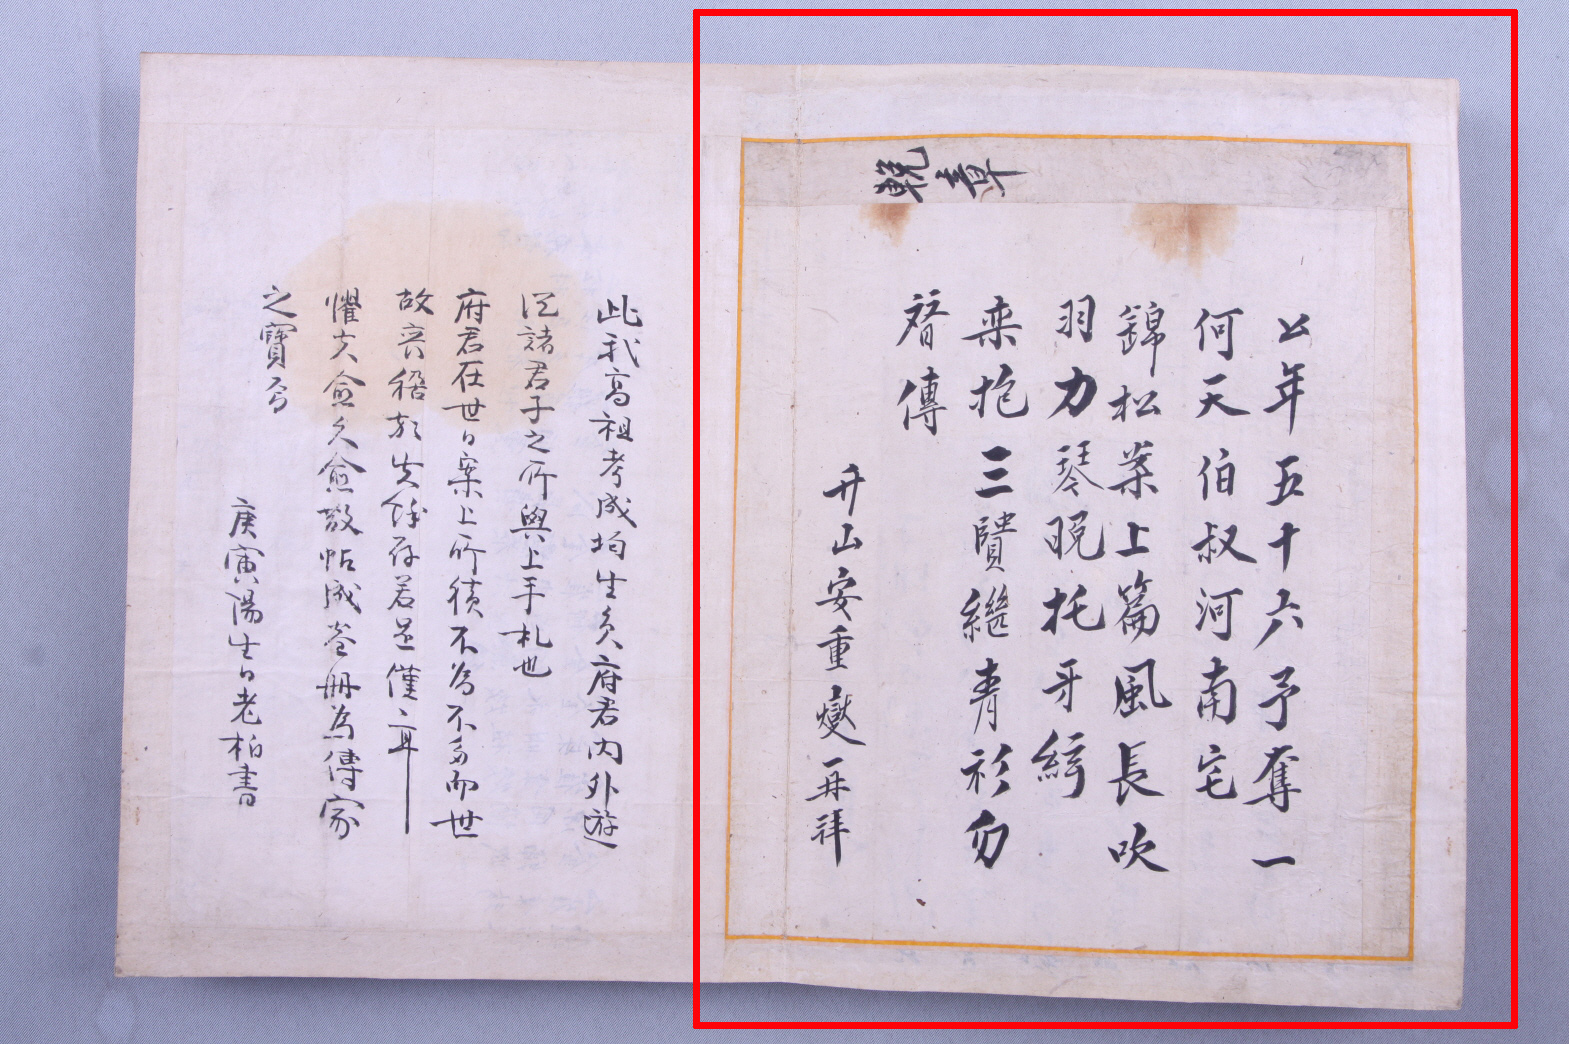 輓章
公年五十六予奪一
何天伯叔河南宅
錦松葉上篇風長吹
羽力琴晚托牙
栾抱三隤繼青衫勿
替傳
升山安重燮再拜
此我高祖考成均生員府君内外遊
從諸君子之所與上手札也
府君在世日案上所積不為不多而世
故喪失餘存若是僅耳
懼夫愈久愈散帖成卷冊為傳家
之寶焉
庚寅陽生日老柏書